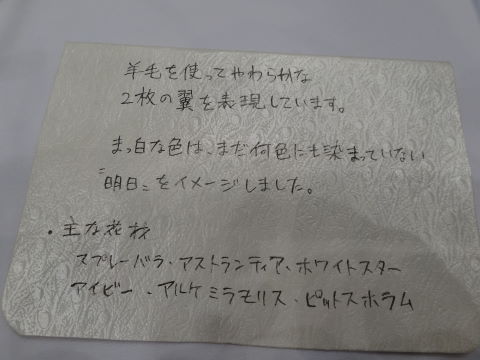 羊毛を使ってやわらかな
2枚の翼を表現しています。
まっ白な色は、まだ何色にも染まっていない
"明日"をイメージしました。
・主な花材
スプレーバラ・アストランティア・ホワイトスター
アイビー・アルケミラモリス・ピットスポラム